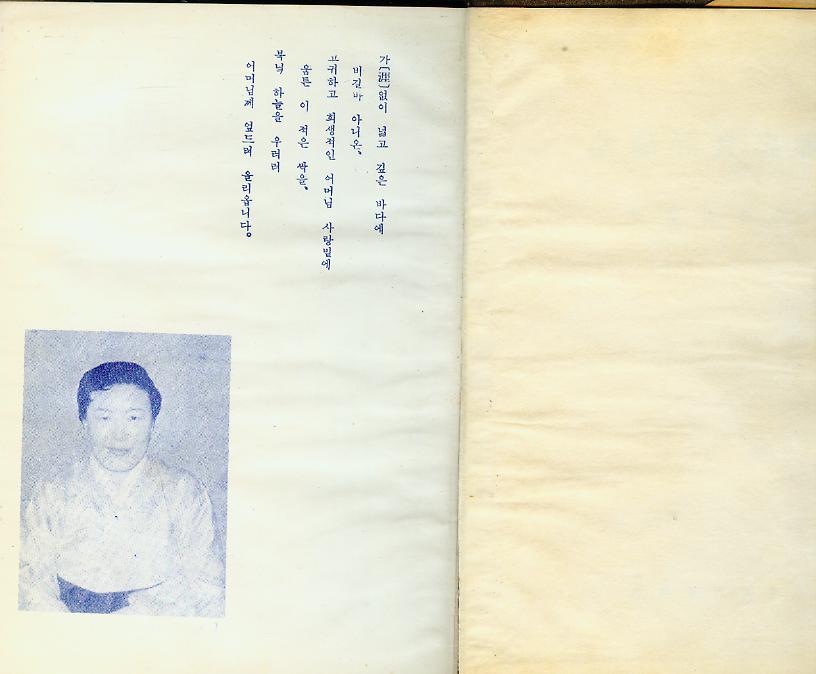 가〔涯〕없이 넓고 깊은 바다에
비길바 아니온、
고귀하고 희생적인 어머님 사랑밑에
움튼 이 적은 싹을、
북녘 하늘을 우러러
어머님께 엎드려 올리옵니다。